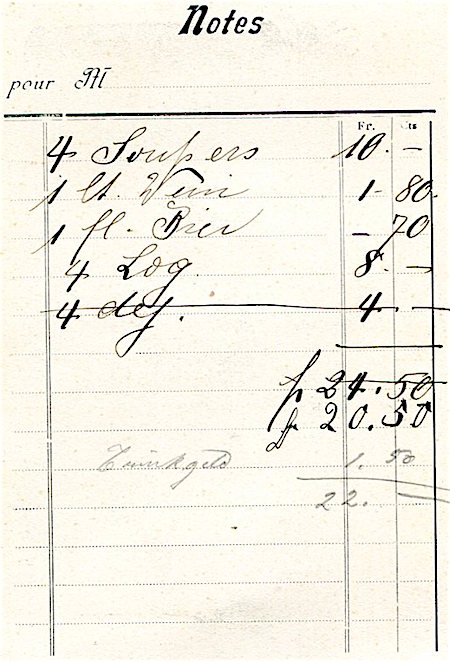 Notes
pour M
Fr. Cts
4 Soupers 10. –
1 lt. Vin 1 - 80.
1 fl. Bier – 70
4 Log. 8. –
4 dej. 4. –
fr 24.50
fr 20.50
Trinkgeld 1.50
22.